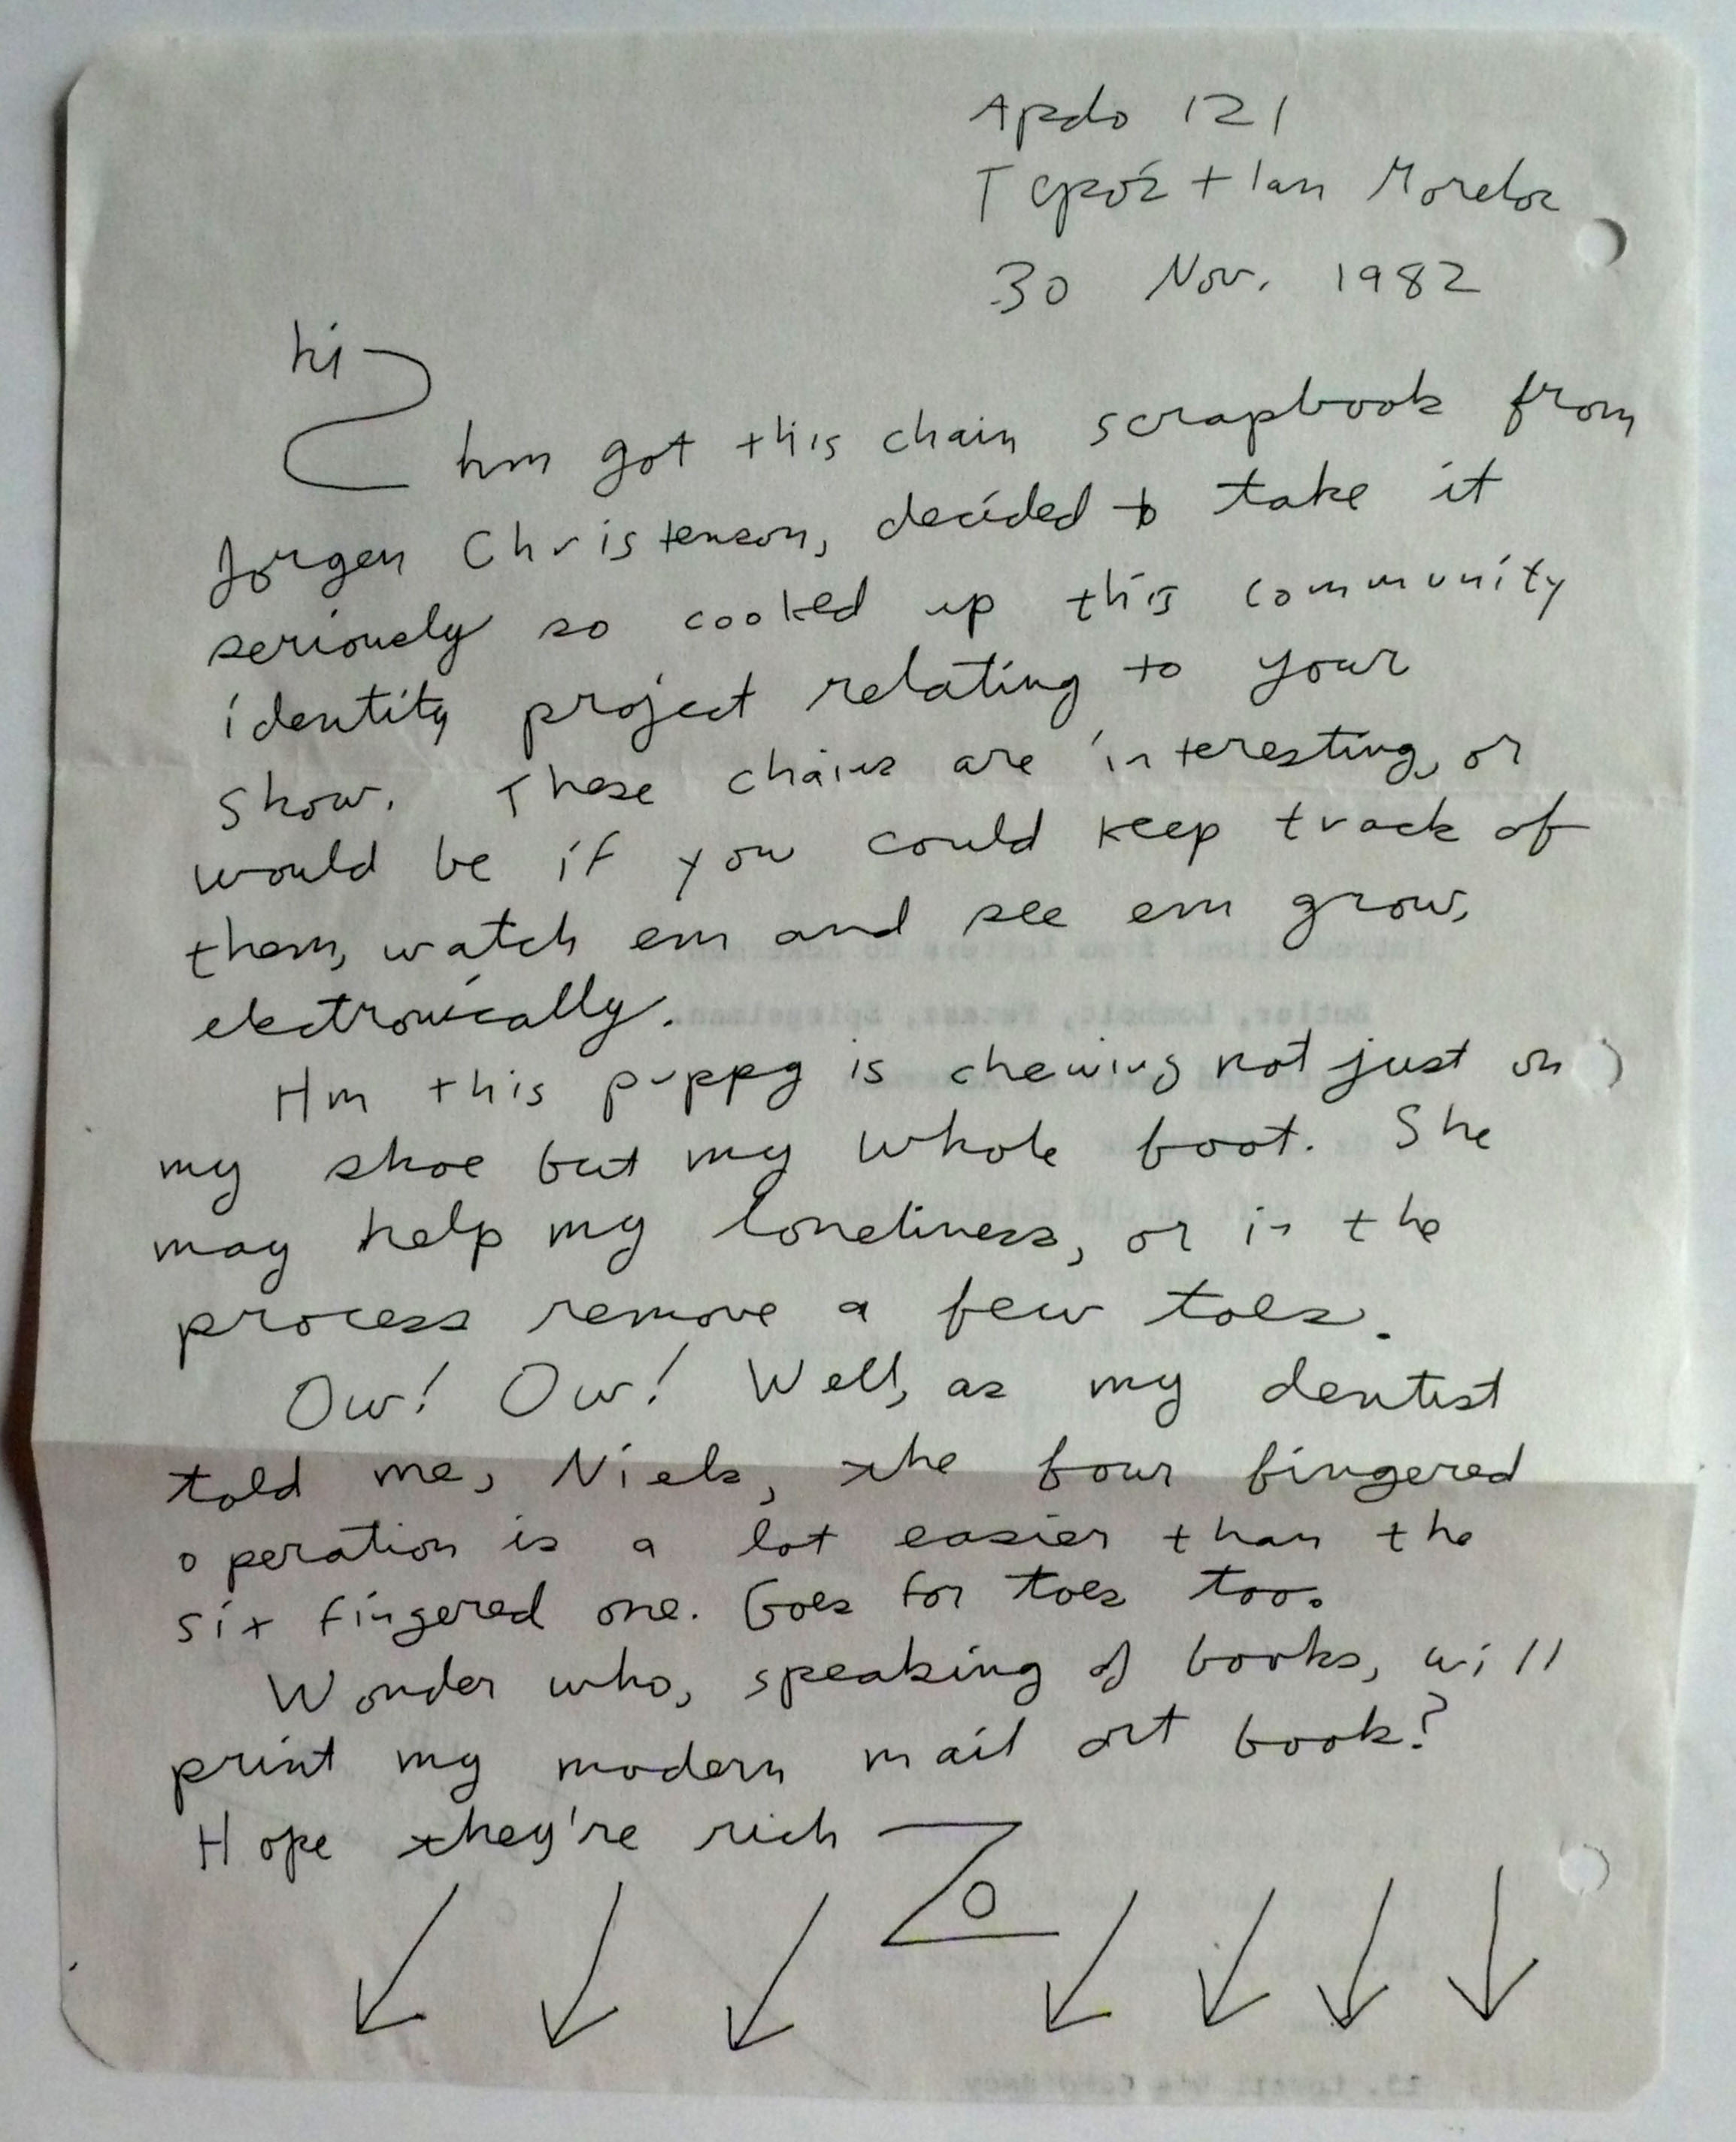 Apdo 121
Tepóztlan Morelos
30 Nov. 1982
hi
hm got this chain scrapbook from
Jorgen Christenson, decided to take it
seriously so cooked up this community
identity project relating to your
show. These chains are interesting, or
would be if you could keep track of
them, watch em and see em grow,
electronically.
Hm this puppy is chewing not just on
my shoe but my whole foot. She
may help my loneliness, or in the
process remove a few toes.
Ow! Ow! Well, as my dentist
told me, Niels, the four fingered
operation is a lot easier than the
six fingered one. Goes for toes too.
Wonder who, speaking of books, will
print my modern mail art book?
Hope they're rich